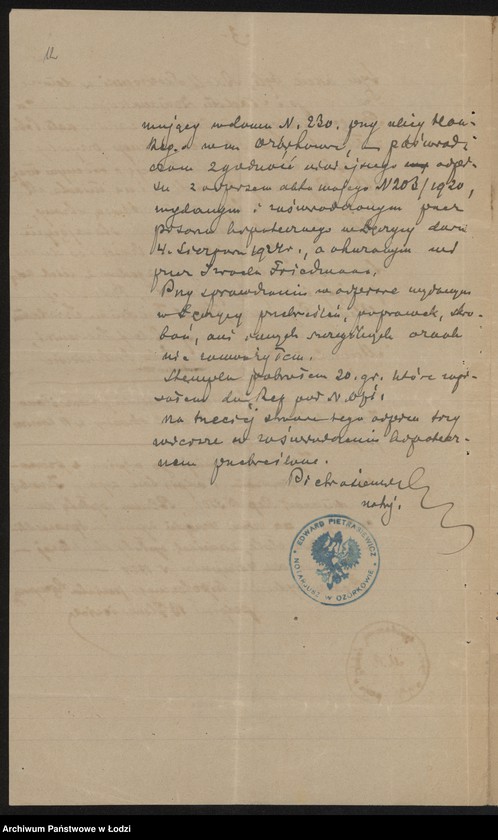 12
mujący w domu N. 230. przy ulicy
w m. Ozorkowie,
zgodność niniejszego odpi-
su z odpisem aktu mojego N 203/1920,
wydanym i zaświadczonym przez
pisarza hypotecznego w Łęczycy dnia
4. Sierpnia 1924 r., a okazanym mi
przez Izraela Friedmana.
Przy sprawdzaniu w odpisie wydanym
w Łęczycy przekreśleń, poprawek, skro-
bań, ani innych szczególnych oznak
nie zauważyłem.
Stempla pobrałem 20. gr. które zapi-
sałem do Rep. pod N.
Na trzeciej stronie tego odpisu trzy
wiersze w zaświadczeniu hypotecz-
nem przekreślone.
Pietrasiewicz
notarj.
EDWARD PIETRASIEWICZ
NOTARJUSZ W OZORKOWIE
Archiwum Państwowe w Łodzi